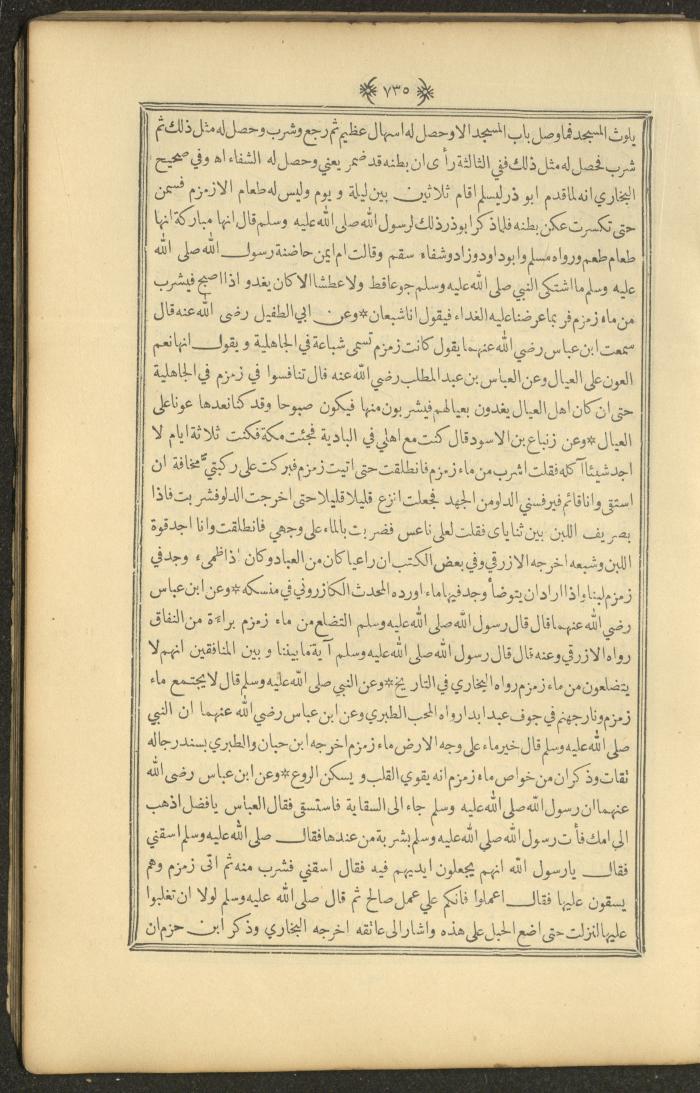 ٧٣٥
يلوث المسجد فما وصل باب المسجد الا وحصل له اسهال عظيم ثم رجع وشرب وحصل له مثل ذلك ثم
شرب فحصل له مثل ذلك ففي الثالثة رأى ان بطنه قد ضمر يعني وحصل له الشفاء اه وفي صحيح
البخاري انه لما قدم ابو ذر ليسلم اقام ثلاثين بين ليلة و يوم وليس له طعام الا زمزم فسمن
حتى تكسرت عكن بطنه فلما ذكر ابو ذر ذلك لرسول الله صلى الله عليه وسلم قال انها مباركة انها
طعام طعم ورواه مسلم وابو داود وزاد وشفاء سقم وقالت ام ايمن حاضنة رسول الله صلى الله
عليه وسلم ما اشتكى النبي صلى الله عليه وسلم جوعا قط ولا عطشا الا كان يغدو اذا اصبح فيشرب
من ماء زمزم فر بما عرضنا عليه الغداء فيقول انا شبعان * وعن ابي الطفيل رضى الله عنه قال
سمعت ابن عباس رضي الله عنهما يقول كانت زمزم تسمى شباعة في الجاهلية و يقول انها نعم
العون على العيال وعن العباس بن عبد المطلب رضي الله عنه قال تنافسوا في زمزم في الجاهلية
حتى ان كان اهل العيال يغدون بعيالهم فيشر بون منها فيكون صبوحا وقد كنا نعدها عونا على
العيال * وعن زنباع بن الاسود قال كنت مع اهلي في البادية فجئت مكة فكنت ثلاثة ايام لا
اجد شيئا آكله فقلت اشرب من ماء زمزم فانطلقت حتى اتيت زمزم فبركت على ركبتي مخافة ان
استقى وانا قائم فيرفسني الدلو من الجهد فجعلت انزع قليلا قليلا حتى اخرجت الدلو فشر بت فاذا
بصر يف اللبن بين ثناياى فقلت لعلى ناعس فضر بت بالماء على وجهي فانطلقت وانا اجد قوة
اللبن وشبعه اخرجه الازرقي وفي بعض الكتب ان راعيا كان من العباد وكان اذا ظمىء وجد في
زمزم لبنا واذا اراد ان يتوضأ وجد فيها ماء اورده المحدث الكازروني في منسكه * وعن ابن عباس
رضي الله عنهما قال قال رسول الله صلى الله عليه وسلم التضلع من ماء زمزم براءة من النفاق
رواه الازرقي وعنه قال قال رسول الله صلى الله عليه وسلم آية ما بيننا و بين المنافقين انهم لا
يتضلعون من ماء زمزم رواه البخاري في التاريخ * وعن النبي صلى الله عليه وسلم قال لا يجتمع ماء
زمزم ونار جهنم في جوف عبد ابدا رواه المحب الطبري وعن ابن عباس رضي الله عنهما ان النبي
صلى الله عليه وسلم قال خير ماء على وجه الارض ماء زمزم اخرجه ابن حبان والطبري بسند رجاله
ثقات وذكر ان من خواص ماء زمزم انه يقوي القلب و يسكن الروع * وعن ابن عباس رضى الله
عنهما ان رسول الله صلى الله عليه وسلم جاء الى السقاية فاستسقى فقال العباس يا فضل اذهب
الى امك فأت رسول الله صلى الله عليه وسلم بشر بة من عندها فقال صلى الله عليه وسلم اسقني
فقال يا رسول الله انهم يجعلون ايديهم فيه فقال اسقني فشرب منه ثم اتى زمزم وهم
يسقون عليها فقال اعملوا فانكم على عمل صالح ثم قال صلى الله عليه وسلم لولا ان تغلبوا
عليها لنزلت حتى اضع الحبل على هذه واشار الى عاتقه اخرجه البخاري وذكر ابن حزم ان